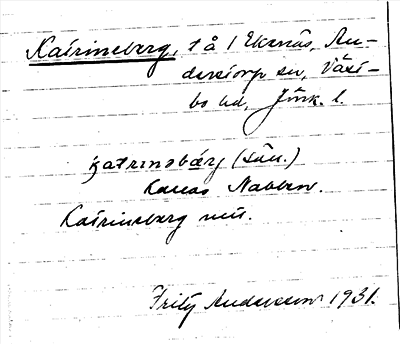 Katrineberg, t å 1 Ekenäs, An-
derstorp sn, Väst
bo hd, Jönk. l.
katrinəbærj (sån.)
kallas Nabben.
Katrineberg
Fritz Andersson 1931.